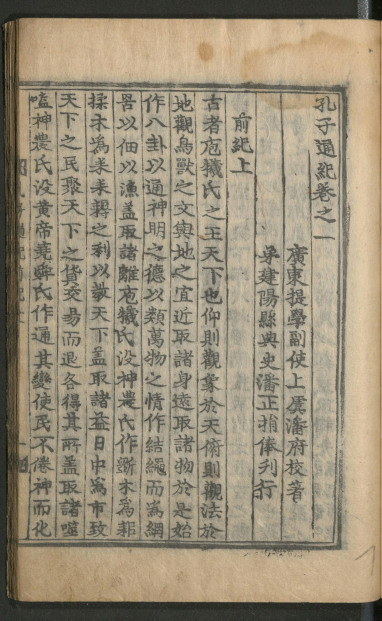 孔子通紀卷之一
廣東提學副使上虞潘府校著
建陽縣典史潘正捐俸刋行
前紀上
古者庖犧氏之王天下也仰則觀象於天俯則觀法於
地觀鳥獸之文與地之宜近取諸身遠取諸物於是始
作八卦以通神明之德以類萬物之情作結繩而爲網
罟以佃以漁盖取諸離庖犧氏沒神農氏作斲木爲耜
揉木爲耒耒耨之利以敎天下盖取諸益日中爲市致
天下之民聚天下之貨交易而退各得其所盖取諸噬
嗑神農氏没黄帝堯舜氏作通其變使民不倦神而化